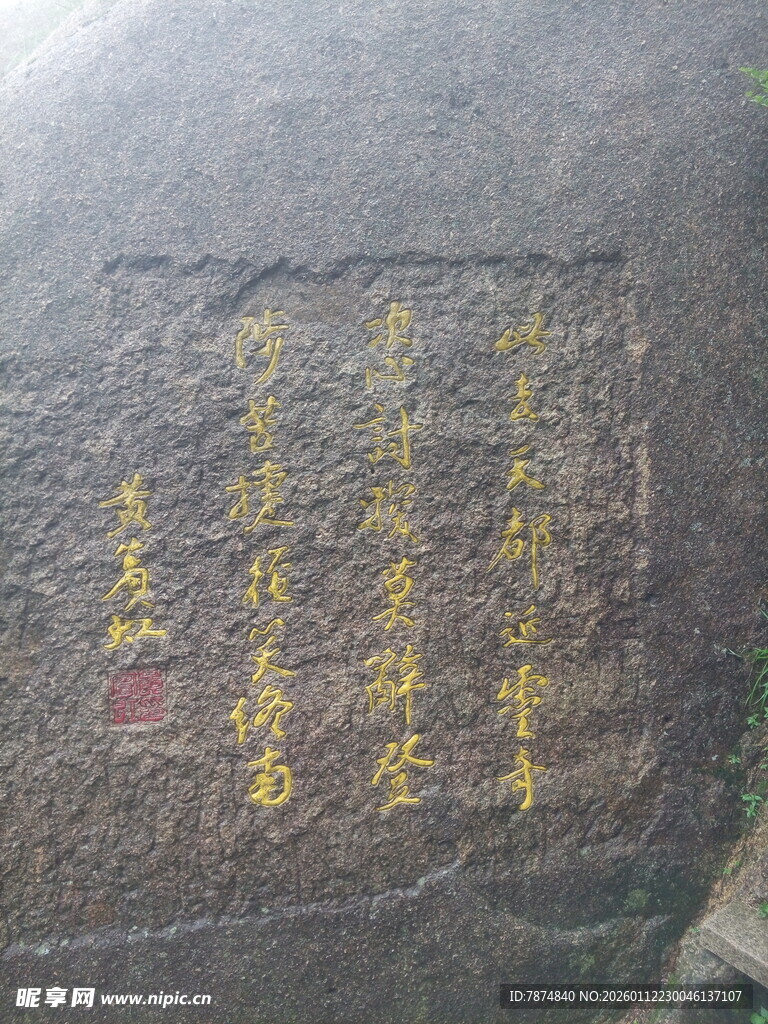 此去天都近靈奇
恣討探莫辭登
陟苦捷徑笑終南
黄賓虹
昵享网 www.nipic.cn
ID:7874840 NO:20260112230046137107